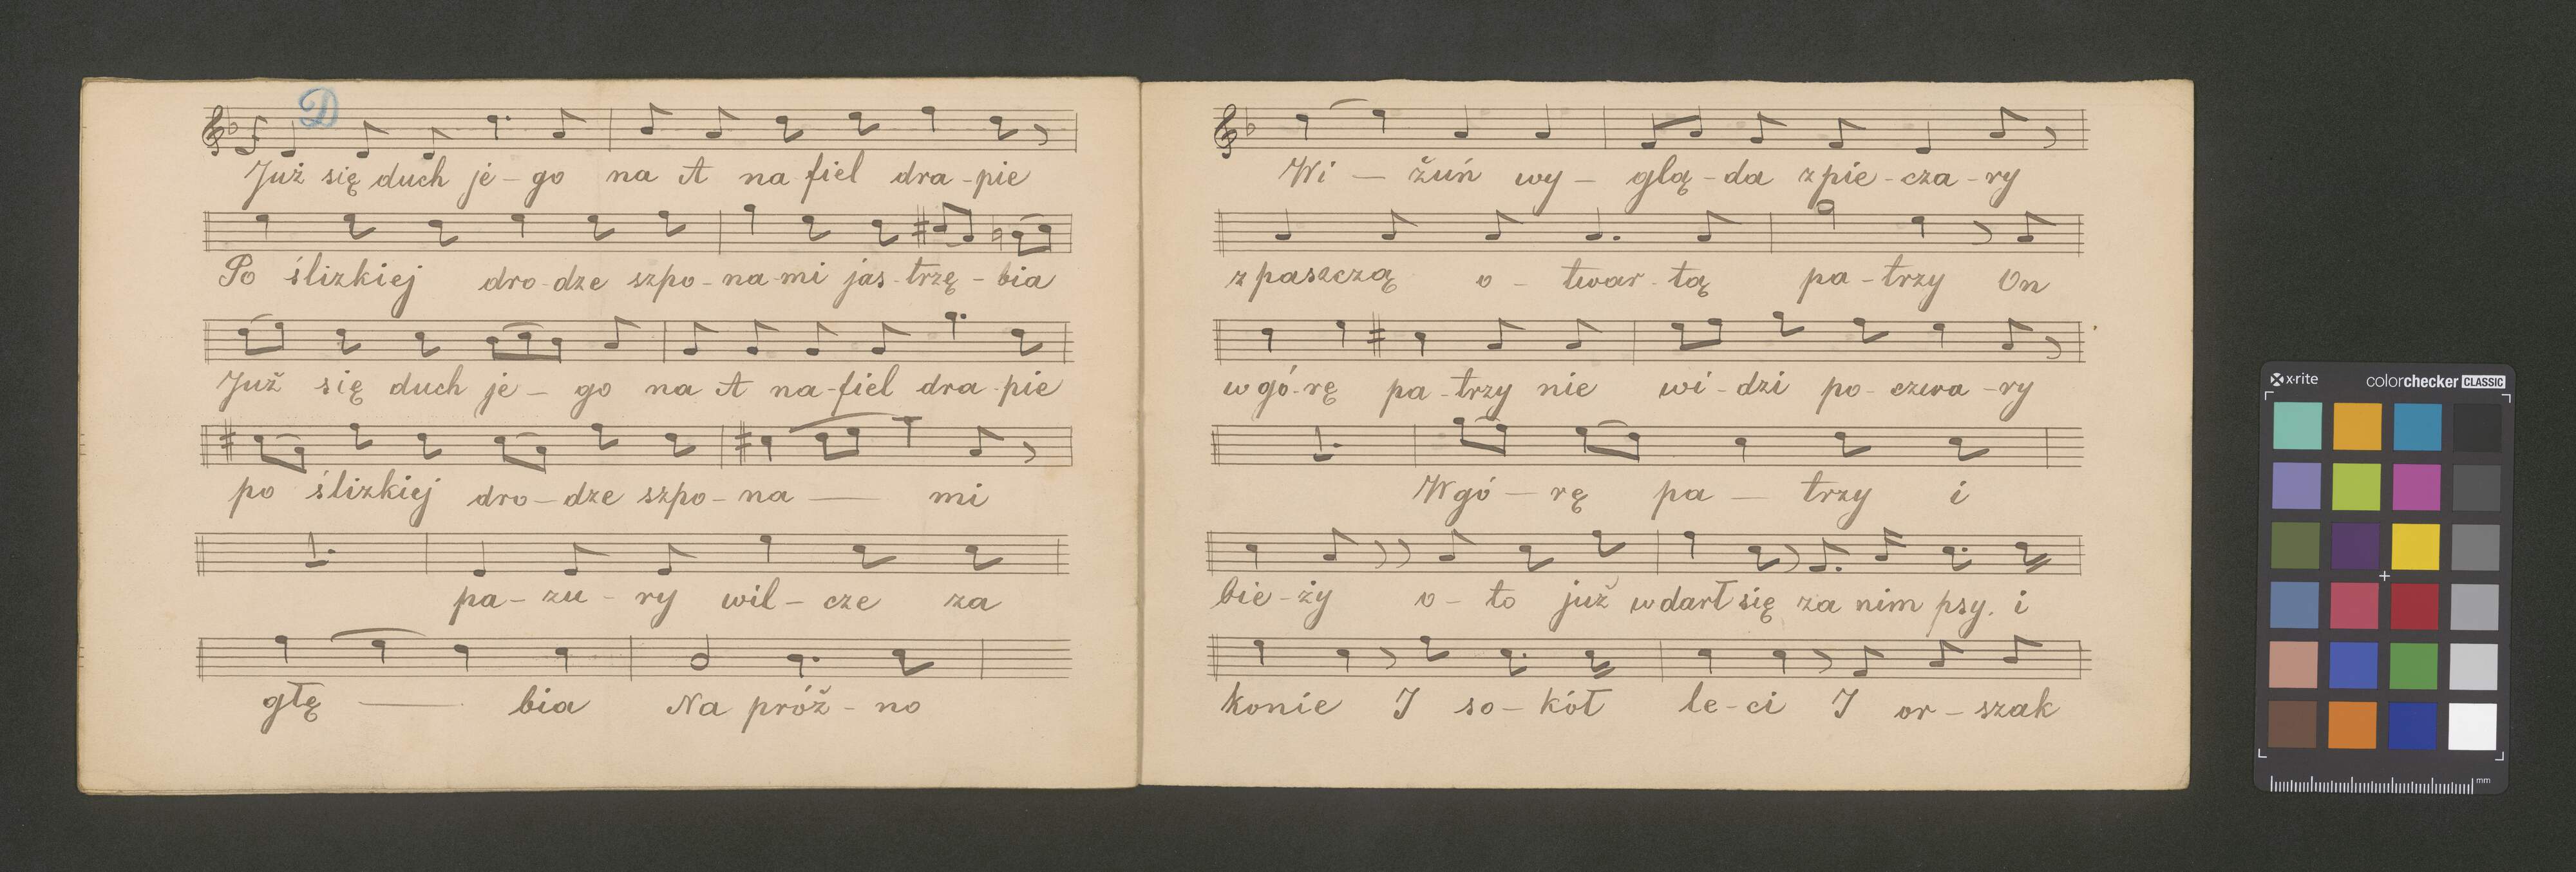 D
Już się duch je - go na A na fiel dra - pie
Po ślizkiej dro - dze szpo - na - mi jas - trzę - bia
Już się duch je - go na A na - fiel dra - pie
po ślizkiej dro - dze szpo - na — mi
pa - zu - ry wil - cze za
głę — bia Na próż - no
Wi — żuń wy - glą - da z pie - cza - ry
z paszczą o - twar - tą pa - trzy On
w gó - rę pa - trzy nie wi - dzi po - czwa - ry
W gó - rę pa — trzy i
bie - ży o - to już wdarł się za nim psy. i
konie I so - kół le - ci I or - szak
x·rite colorchecker CLASSIC
mm